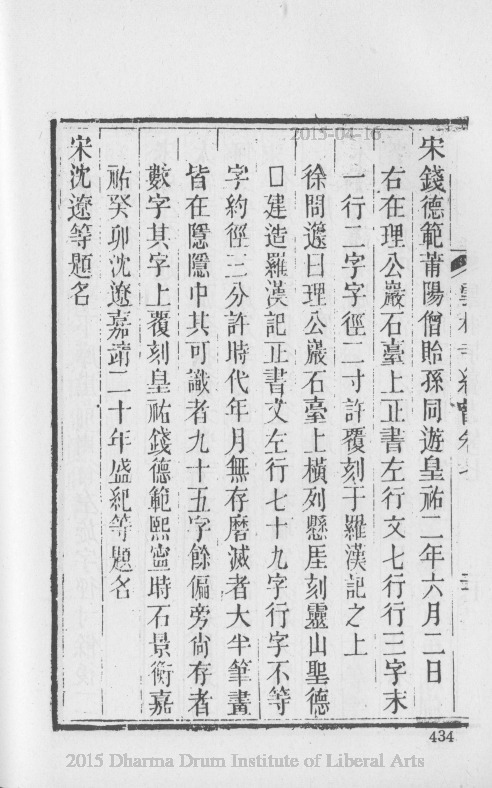 宋錢德範莆陽僧貽孫同遊皇祐二年六月二日
右在理公巖石臺上正書左行文七行行三字末
一行二字字徑二寸許覆刻于羅漢記之上
徐問蘧曰理公巖石臺上橫列懸厓刻靈山聖德
口建造羅漢記正書文左行七十九字行字不等
字約徑三分許時代年月無存磨滅者大半筆畫
皆在隱隱中其可識者九十五字餘偏旁尙存者
數字其字上覆刻皇祐錢德範熙寧時石景衡嘉
祐癸卯沈遼嘉靖二十年盛紀等題名
宋沈遼等題名
2015-04-16
434
2015 Dharma Drum Institute of Liberal Arts